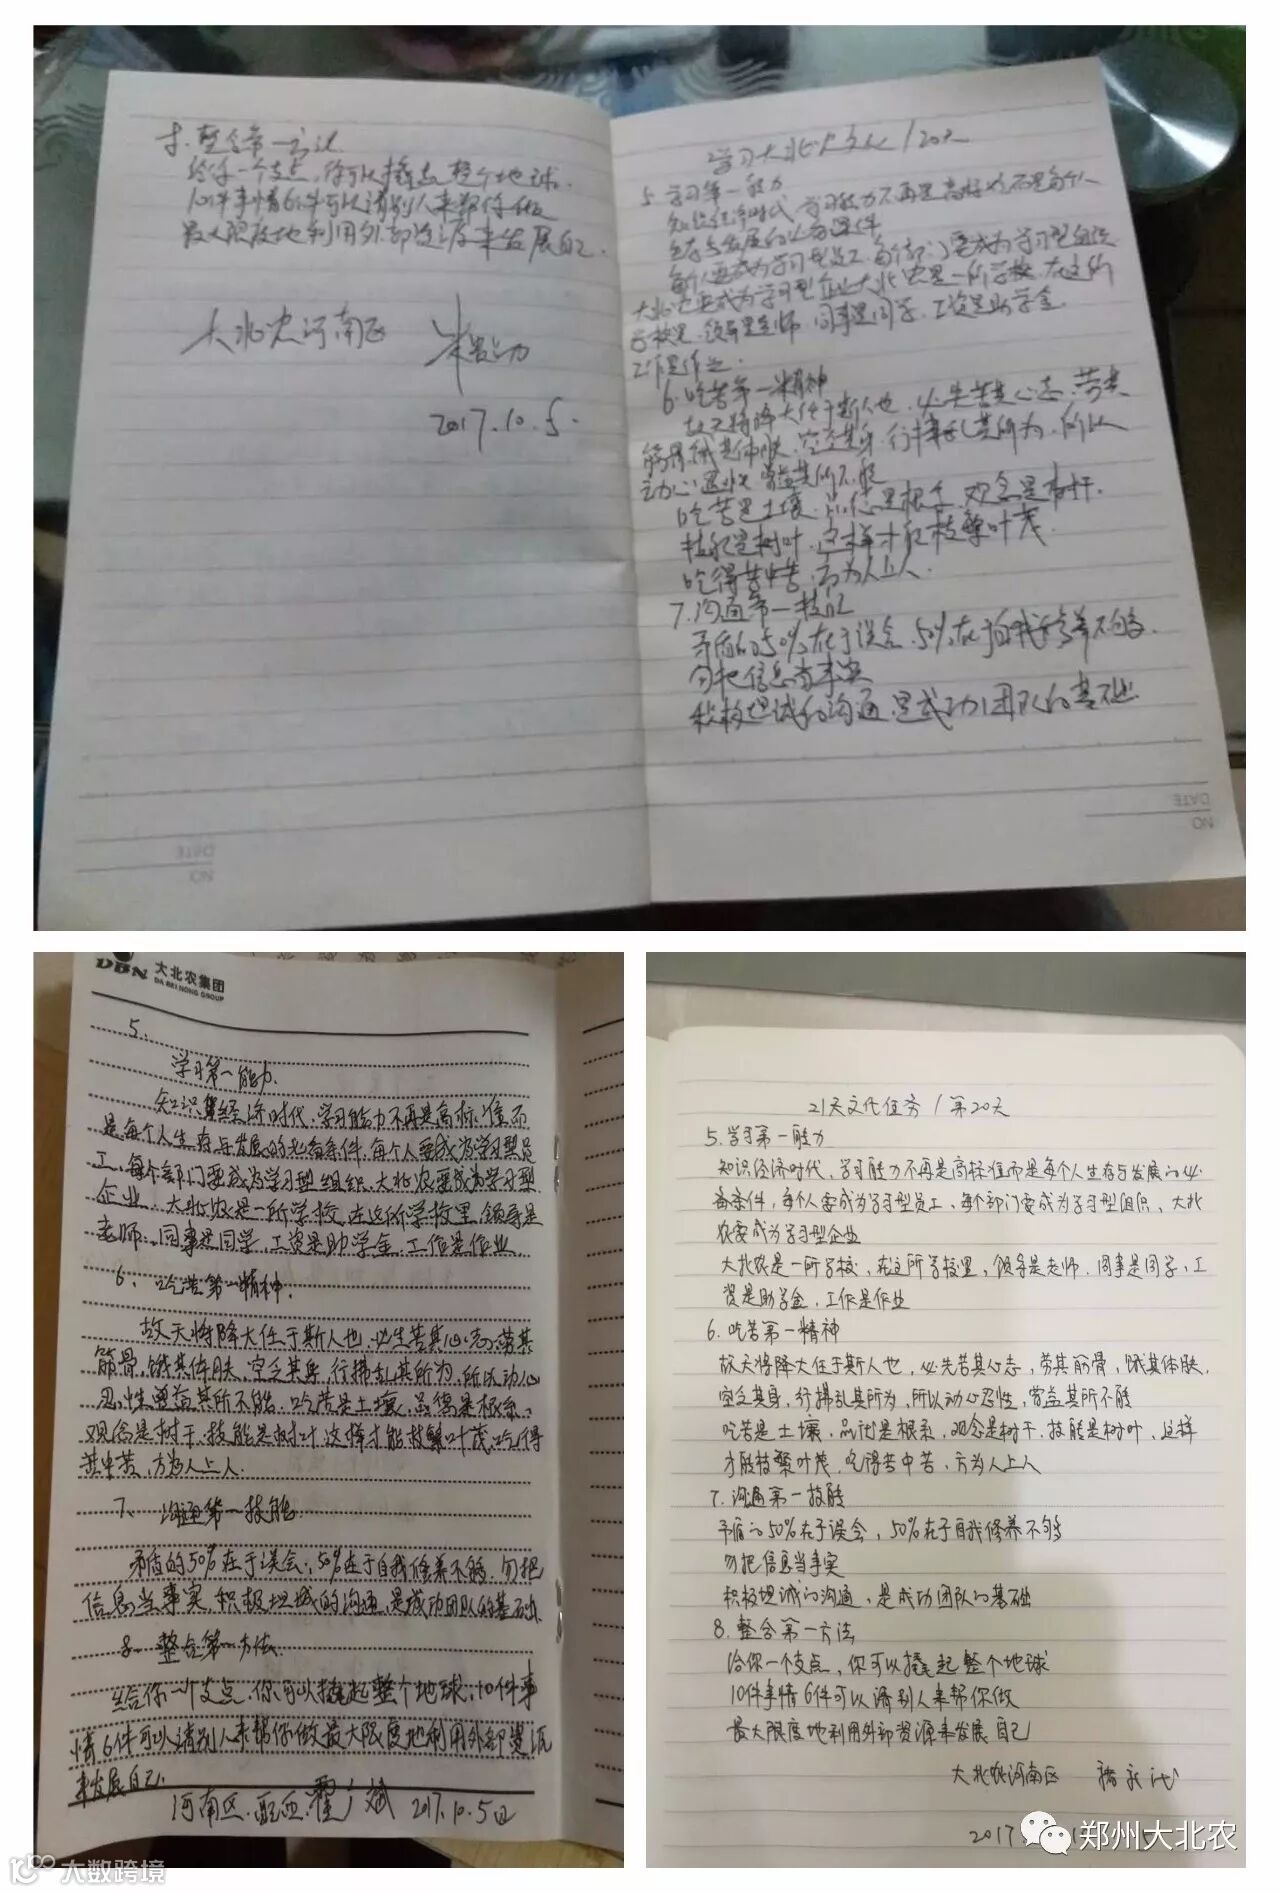 8.整合第一方法
给你一个支点,你可以撬起整个地球.
10件事情6件可以请别人来帮你做
最大限度地利用外部资源来发展自己.
大北农河南区
2017.10.5.
学习大北农文化/20天
5.学习第一能力
知识经济时代,学习能力不再是高标准而是每个人
生存与发展的必备条件
每个人要成为学习型员工,每个部门要成为学习型组织
大北农要成为学习型企业大北农是一所学校,在这所
学校里,领导是老师,同事是同学,工资是助学金
工作是作业.
6.吃苦第一精神
故天将降大任于斯人也,必先苦其心志,劳其
筋骨,饿其体肤,空乏其身,行拂乱其所为,所以
动心忍性,曾益其所不能
吃苦是土壤,品德是根系,观念是树干.
技能是树叶,这样才能枝繁叶茂.
吃得苦中苦,方为人上人.
7.沟通第一技能
矛盾的50%在于误会,50%在于自我修养不够.
勿把信息当事实
积极坦诚的沟通,是成功团队的基础
DATE
NO
DATE
NO.
DBN 大北农集团
DA BEI NONG GROUP
5.
学习第一能力.
知识经济时代,学习能力不再是高标准而
是每个人生存与发展的必备条件,每个人要成为学习型员
工,每个部门要成为学习型组织,大北农要成为学习型
企业,大北农是一所学校,在这所学校里,领导是
老师,同事是同学,工资是助学金,工作是作业
6、吃苦第一精神.
故天将降大任于斯人也,必先苦其心志,劳其
筋骨,饿其体肤,空乏其身,行拂乱其所为,所以动心
忍性曾益其所不能,吃苦是土壤,品德是根系,
观念是树干,技能是树叶,这样才能枝繁叶茂,吃得
苦中苦,方为人上人.
7、沟通第一技能
矛盾的50%在于误会,50%在于自我修养不够,勿把
信息当事实,积极坦诚的沟通,是成功团队的基础
8、整合第一方法.
给你一个支点,你可以撬起整个地球,10件事
情6件可以请别人来帮你做最大限度地利用外部资源
来发展自己.
河南区.配西.翟广斌 2017.10.5日
21天文化任务/第20天
5.学习第一能力
知识经济时代,学习能力不再是高标准而是每个人生存与发展的必
备条件,每个人要成为学习型员工,每个部门要成为学习型组织,大北
农要成为学习型企业
大北农是一所学校,在这所学校里,领导是老师,同事是同学,工
资是助学金,工作是作业
6.吃苦第一精神
故天将降大任于斯人也,必先苦其心志,劳其筋骨,饿其体肤,
空乏其身,行拂乱其所为,所以动心忍性,曾益其所不能
吃苦是土壤,品德是根系,观念是树干,技能是树叶,这样
才能枝繁叶茂,吃得苦中苦,方为人上人
7.沟通第一技能
矛盾的50%在于误会,50%在于自我修养不够
勿把信息当事实
积极坦诚的沟通,是成功团队的基础
8.整合第一方法
给你一个支点,你可以撬起整个地球
10件事情6件可以请别人来帮你做
最大限度地利用外部资源来发展自己
大北农河南区
2017
郑州大北农
大数跨境